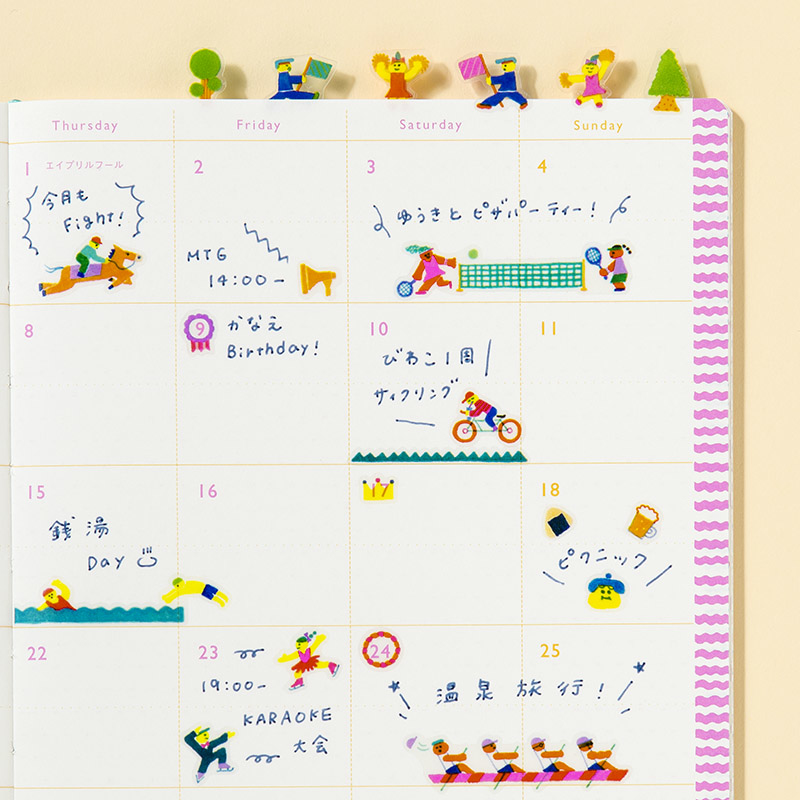 Thursday
Friday
Saturday
Sunday
1 エイプリルフール
今月も
Fight!
2
MTG
14:00-
3
4
ゆうきと ピザパーティー!
8
9 かなえ
Birthday!
10
びわこ1周
サイクリング
11
15
銭湯
DAY
16
17
18
ピクニック
22
23
19:00-
KARAOKE
大会
24
25
温泉旅行!